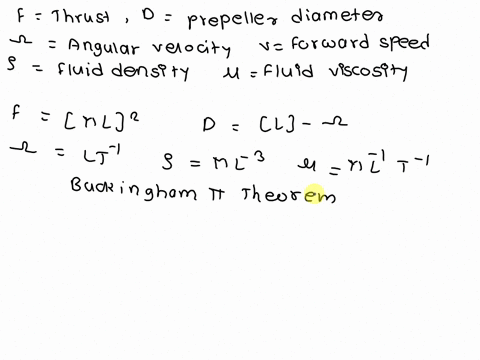 F = Thrust, D = propeller diameter
Ω = Angular velocity v = forward speed
ρ = fluid density μ = fluid viscosity
F = [ML]² D = [L] - Ω
Ω = LT⁻¹ ρ = ML⁻³ μ = ML⁻¹T⁻¹
Buckingham π Theorem